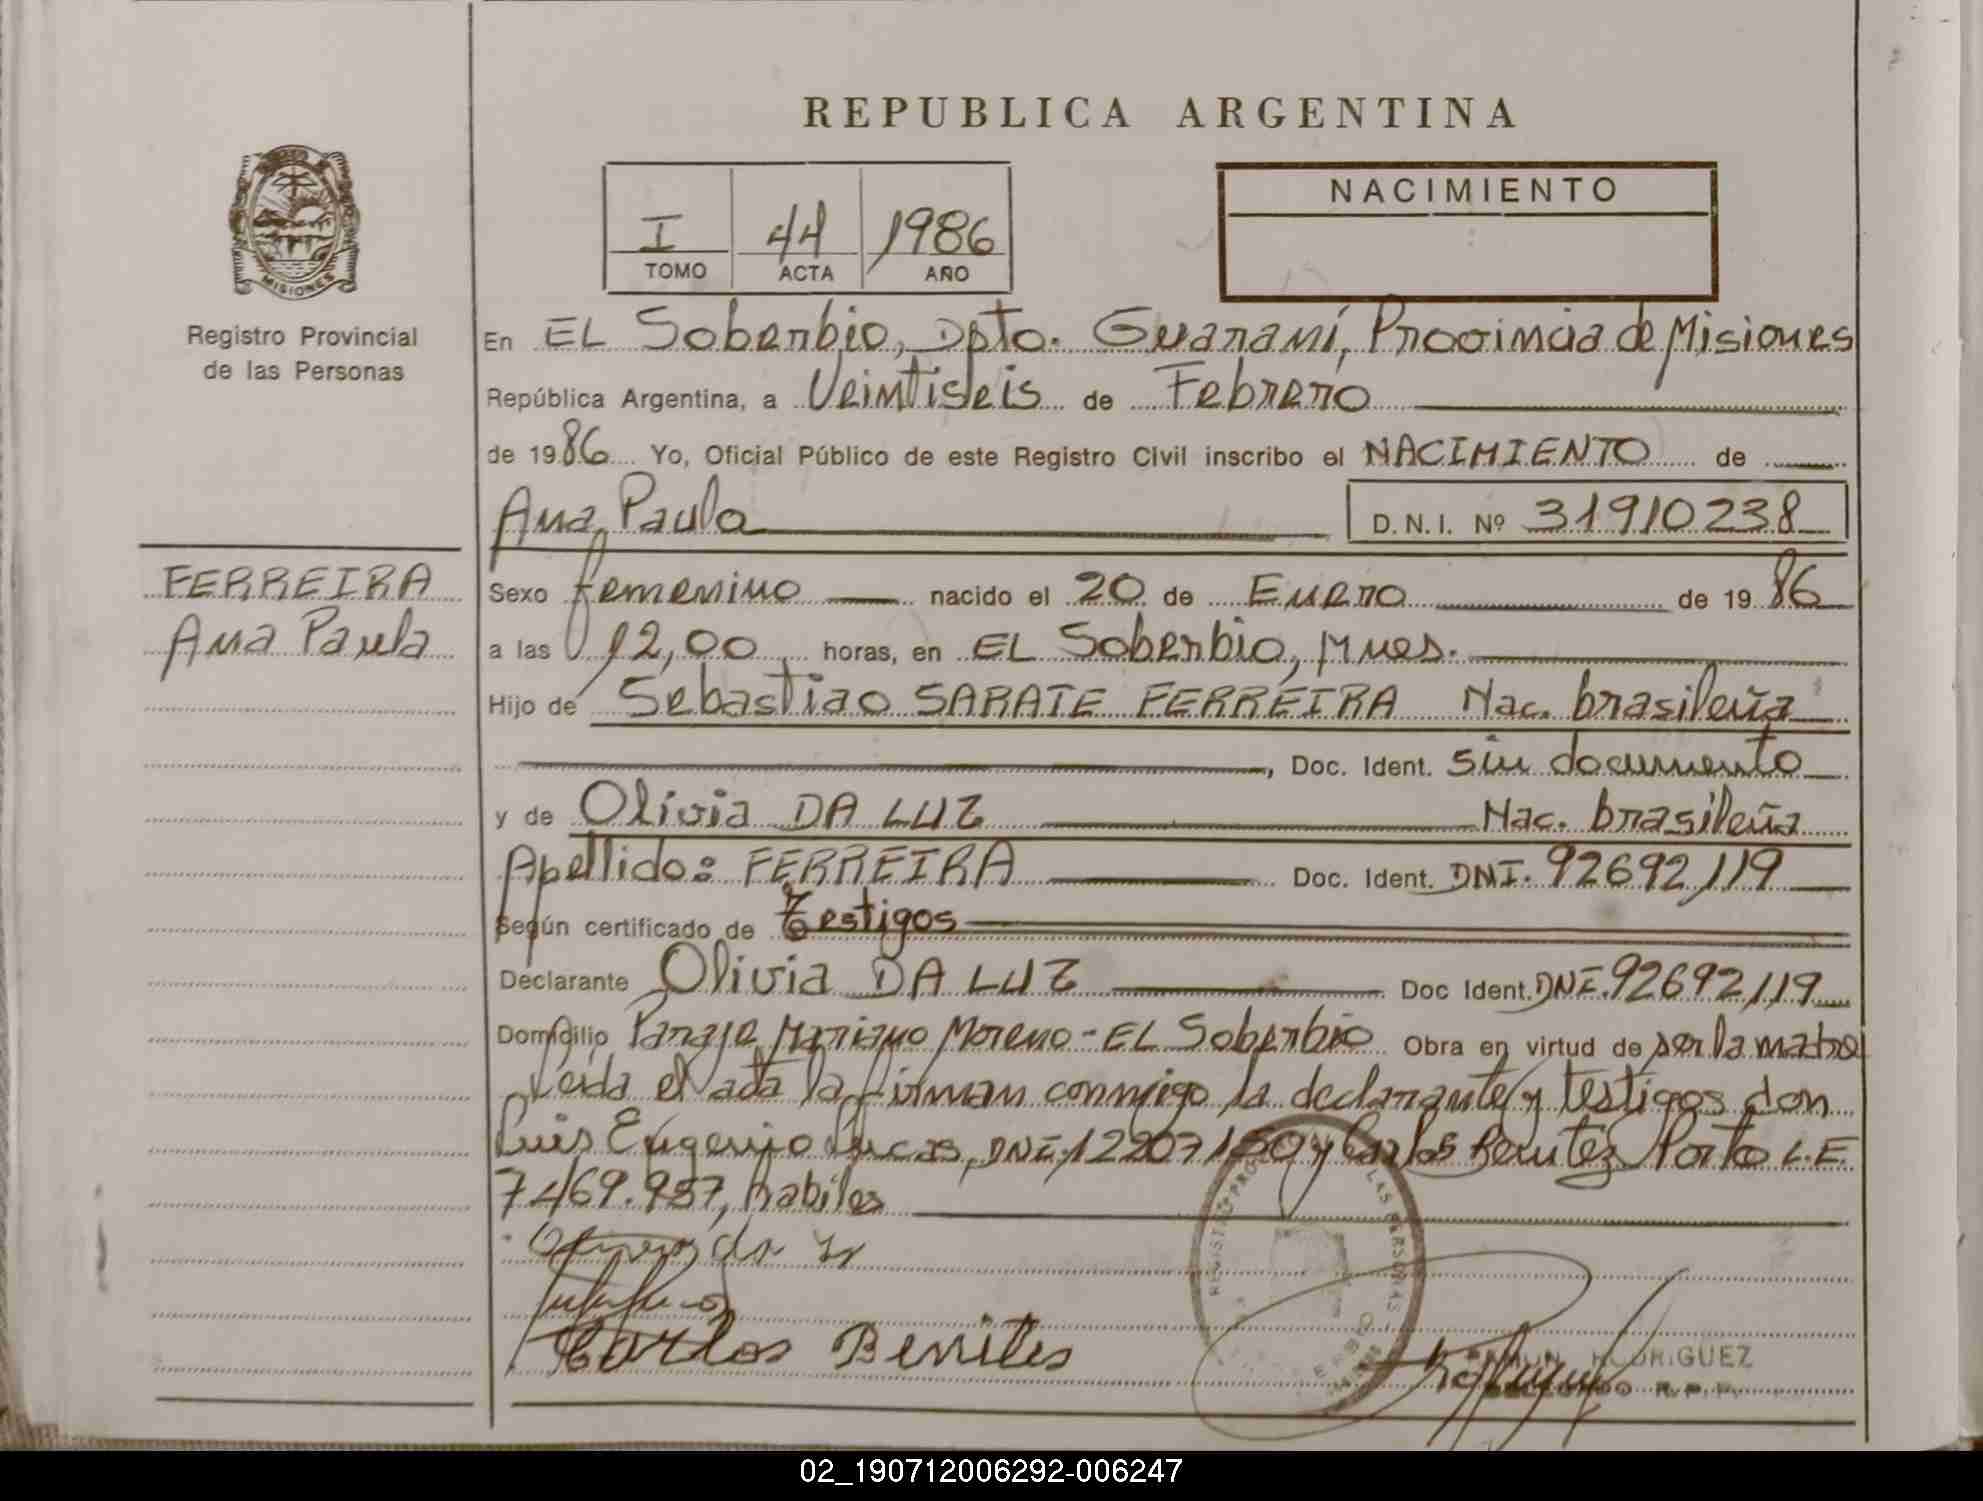 REPUBLICA ARGENTINA
MISIONES
Registro Provincial
de las Personas
I 44 1986
TOMO ACTA AÑO
NACIMIENTO
En EL Soberbio, Dpto. Guaraní, Provincia de Misiones
República Argentina, a Veintiseis de Febrero
de 1986 Yo, Oficial Público de este Registro Civil inscribo el NACIMIENTO de
Ana Paula D.N.I. Nº 31910238
FERREIRA
Ana Paula
Sexo femenino nacido el 20 de Enero de 1986
a las 12,00 horas, en EL Soberbio, Mnes.
Hijo de Sebastiao SARATE FERREIRA Nac. brasileña
, Doc. Ident. sin documento
y de Olivia DA LUZ Nac. brasileña
Apellido: FERREIRA Doc. Ident. DNI. 92692119
Según certificado de Testigos
Declarante Olivia DA LUZ Doc Ident. DNI. 92692119
Domicilio Paraje Mariano Moreno - EL Soberbio Obra en virtud de ser la madre
Leida el acta la firman conmigo la declarante y testigos don
Luis Eugenio Lucas, DNI. 12207150 y Carlos Benitez Porto L.E.
7469.957, habiles
Carlos Benites
REGISTRO LAS PERSONAS
RAMON RODRIGUEZ
R.P.P.
02_190712006292-006247